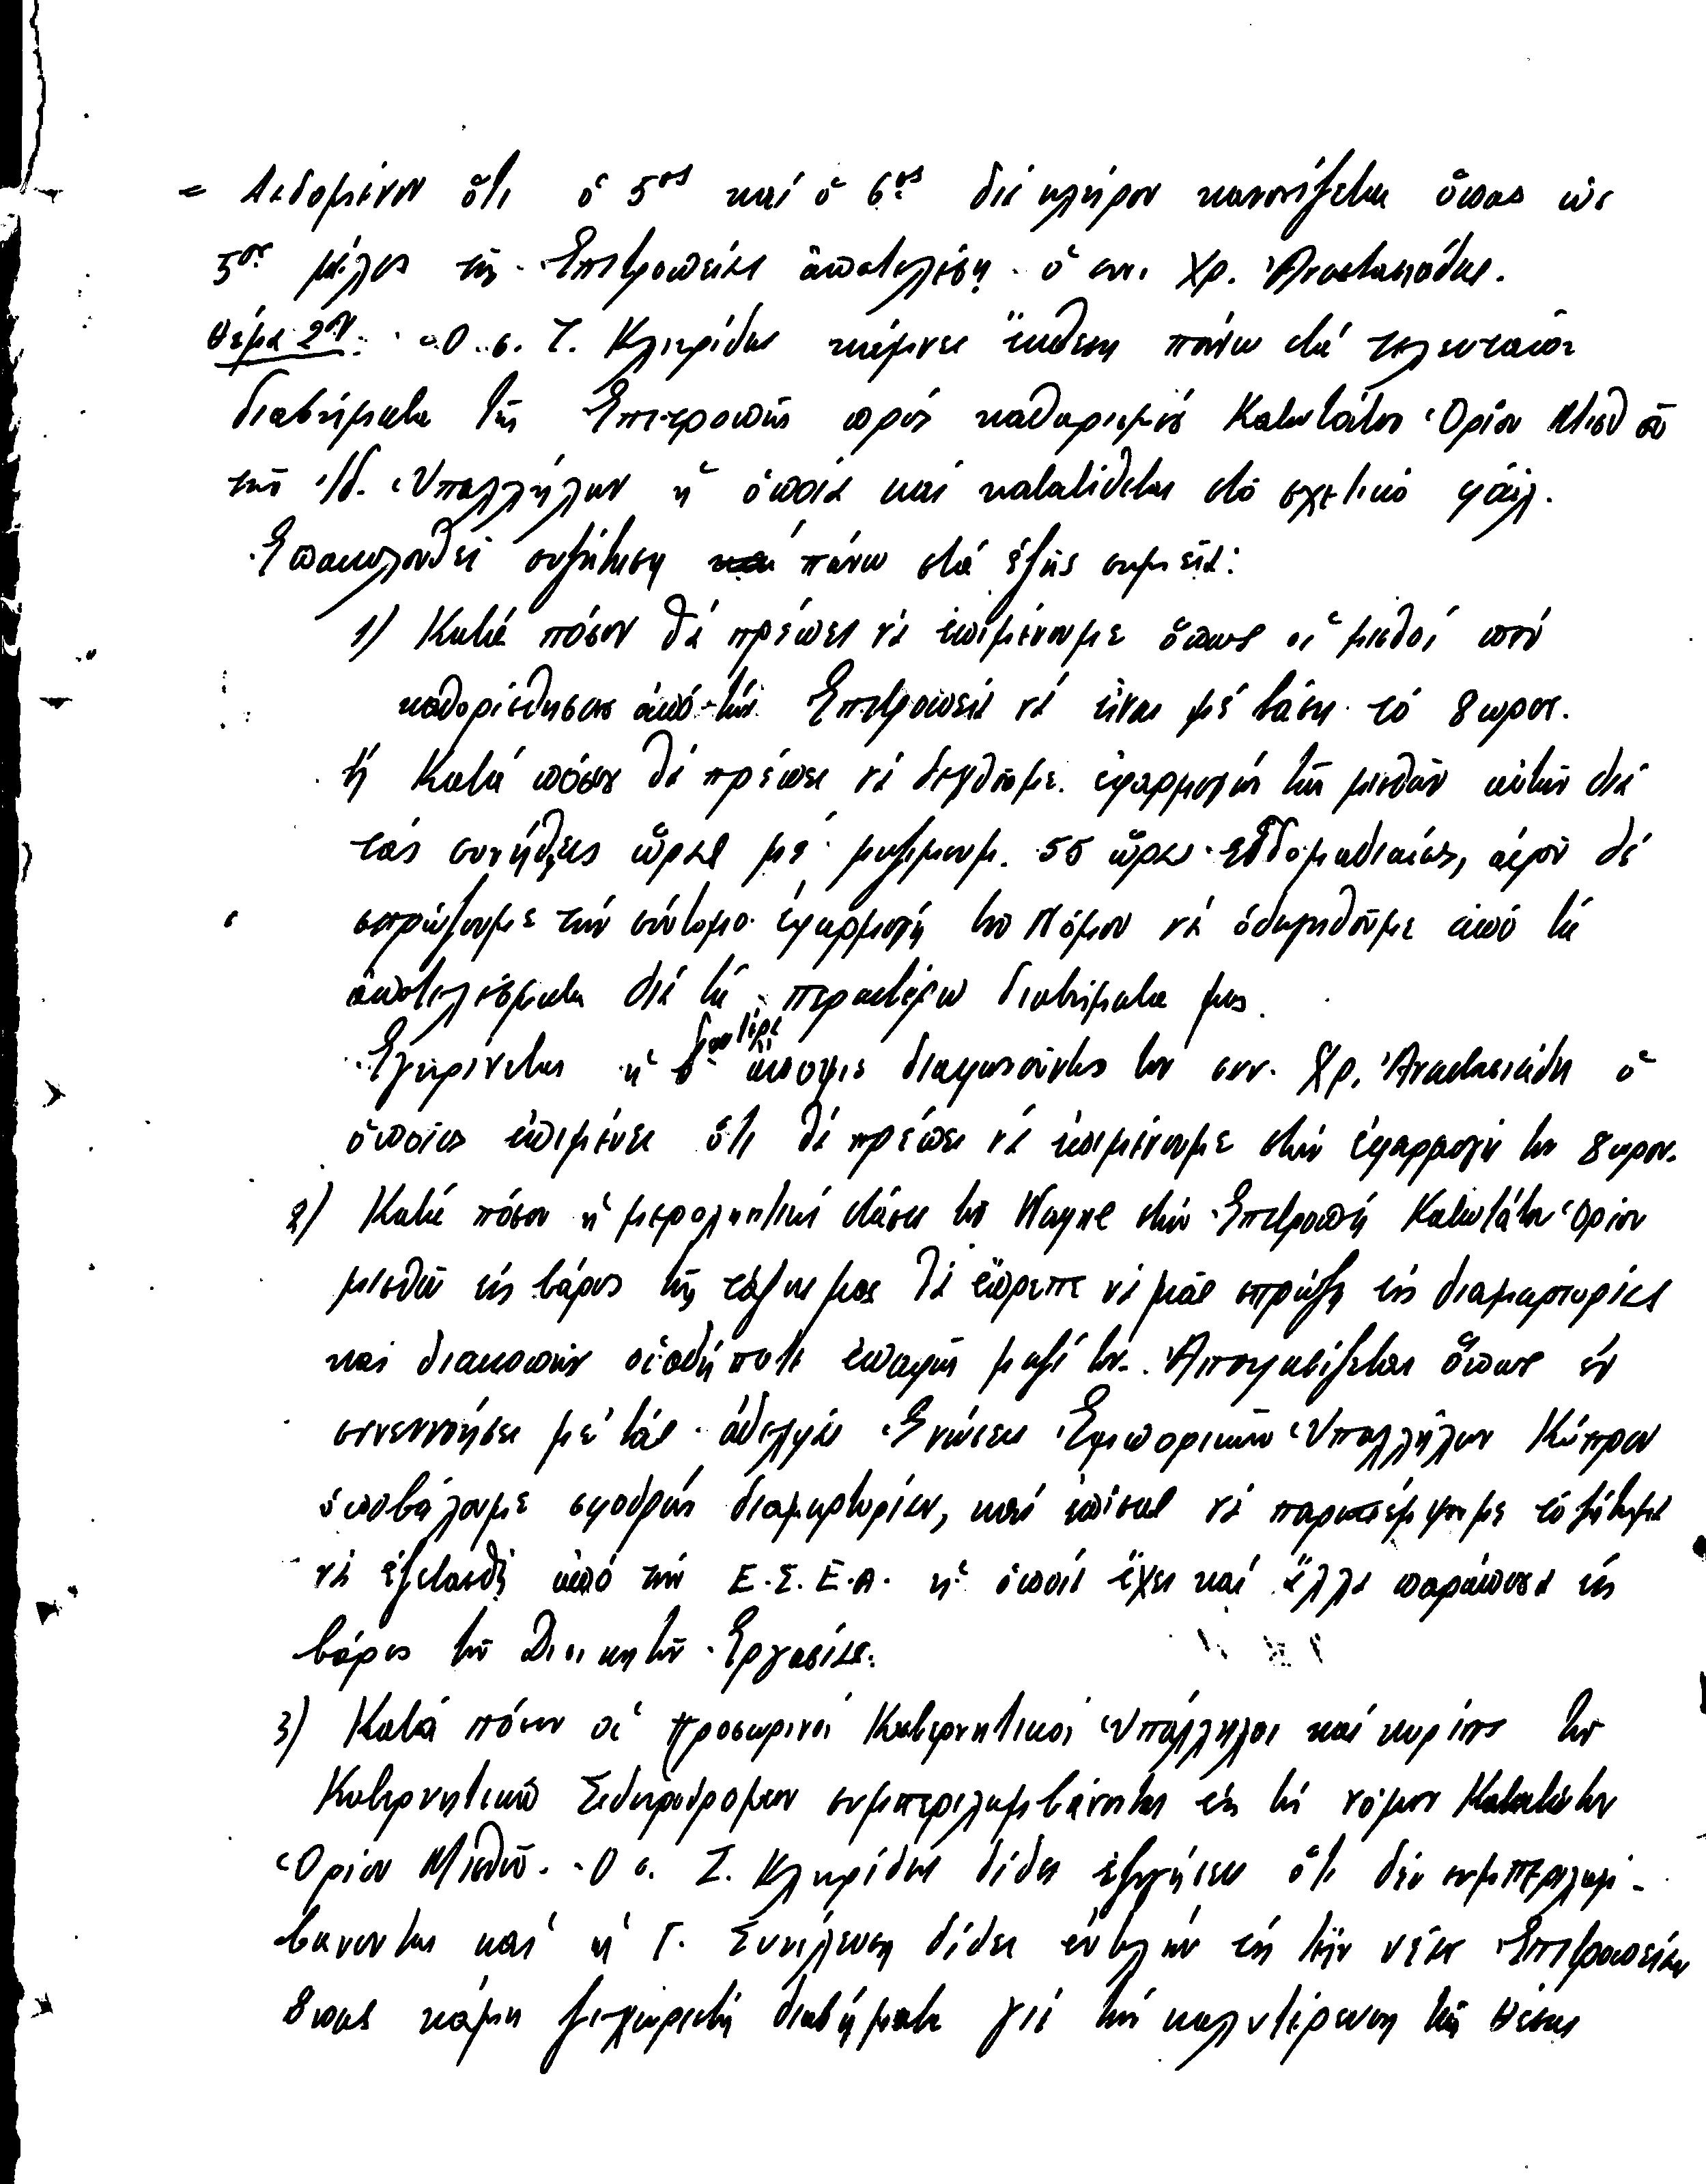 = Δεδομένου ὅτι ὁ 5ος καί ὁ 6ος διά κλήρου κανονίζεται ὅπως ὡς
5ον μέλος τῆς Ἐπιτροπείας ἀποτελέση ὁ συν. Χρ. Ἀναστασιάδης.
Θέμα 2ον: Ὁ σ. Ζ. Κληρίδης κάμνει ἔκθεση πάνω στά τελευταῖα
διαβήματα τῆς Ἐπιτροπῆς πρός καθορισμό Κατωτάτου Ὁρίου Μισθοῦ
τῶν Ἰδ. Ὑπαλλήλων ἡ ὁποία καί κατατίθεται στό σχετικό φάϊλ.
Ἐπακολουθεῖ συζήτηση πάνω στά ἑξῆς σημεῖα:
1) Κατά πόσον θά πρέπει νά ἐπιμένουμε ὅπως οἱ μισθοί πού
καθορίσθησαν ἀπό τήν Ἐπιτροπεία νά εἶναι μέ βάση τό 8ωρον.
ἤ Κατά πόσον θά πρέπει νά δεχθοῦμε ἐφαρμογήν τῶν μισθῶν αὐτῶν διά
τάς συνήθεις ὥρας μέ μάξιμουμ 55 ὥρες ἑβδομαδιαίως, ἀφοῦ δέ
σπρώξουμε τήν σύντομο ἐφαρμογή τοῦ Νόμου νά ὁδηγηθοῦμε ἀπό τά
ἀποτελέσματα διά τά περαιτέρω διαβήματα μας.
Ἐγκρίνεται ἡ δευτέρα ἄποψις διαφωνοῦντος τοῦ συν. Χρ. Ἀναστασιάδη ὁ
ὁποῖος ἐπιμένει ὅτι θά πρέπει νά ἐπιμένουμε στήν ἐφαρμογή τοῦ 8ωρου.
2) Κατά πόσον ἡ μεροληπτική στάσις τοῦ Wayne στήν Ἐπιτροπή Κατωτάτου Ὁρίου
μισθοῦ εἰς βάρος τῆς τάξης μας θά ἔπρεπε νά μᾶς σπρώξη εἰς διαμαρτυρίας
καί διακοπήν οἱασδήποτε ἐπαφῆς μαζί του. Ἀποφασίζεται ὅπως ἐν
συνεννοήσει μέ τάς ἀδελφάς Ἑνώσεις Ἐμπορικῶν Ὑπαλλήλων Κύπρου
ὑποβάλωμε σφοδράν διαμαρτυρίαν, καί ἐπίσης νά παραπέμψωμε τό ζήτημα
νά ἐξετασθῆ ἀπό τήν Ε.Σ.Ε.Α. ἡ ὁποία ἔχει καί ἄλλα παράπονα εἰς
βάρος τοῦ Διοικητοῦ Ἐργασίας.
3) Κατά πόσον οἱ προσωρινοί Κυβερνητικοί Ὑπάλληλοι καί κυρίως τοῦ
Κυβερνητικοῦ Σιδηροδρόμου συμπεριλαμβάνονται εἰς τόν νόμον Κατωτάτου
Ὁρίου Μισθοῦ. Ὁ σ. Ζ. Κληρίδης δίδει ἐξηγήσεις ὅτι δέν συμπεριλαμ-
βάνονται καί ἡ Γ. Συνέλευση δίδει ἐντολήν εἰς τήν νέαν Ἐπιτροπείαν
ὅπως κάμη ξεχωριστά διαβήματα γιά τήν καλυτέρευση τῆς θέσης